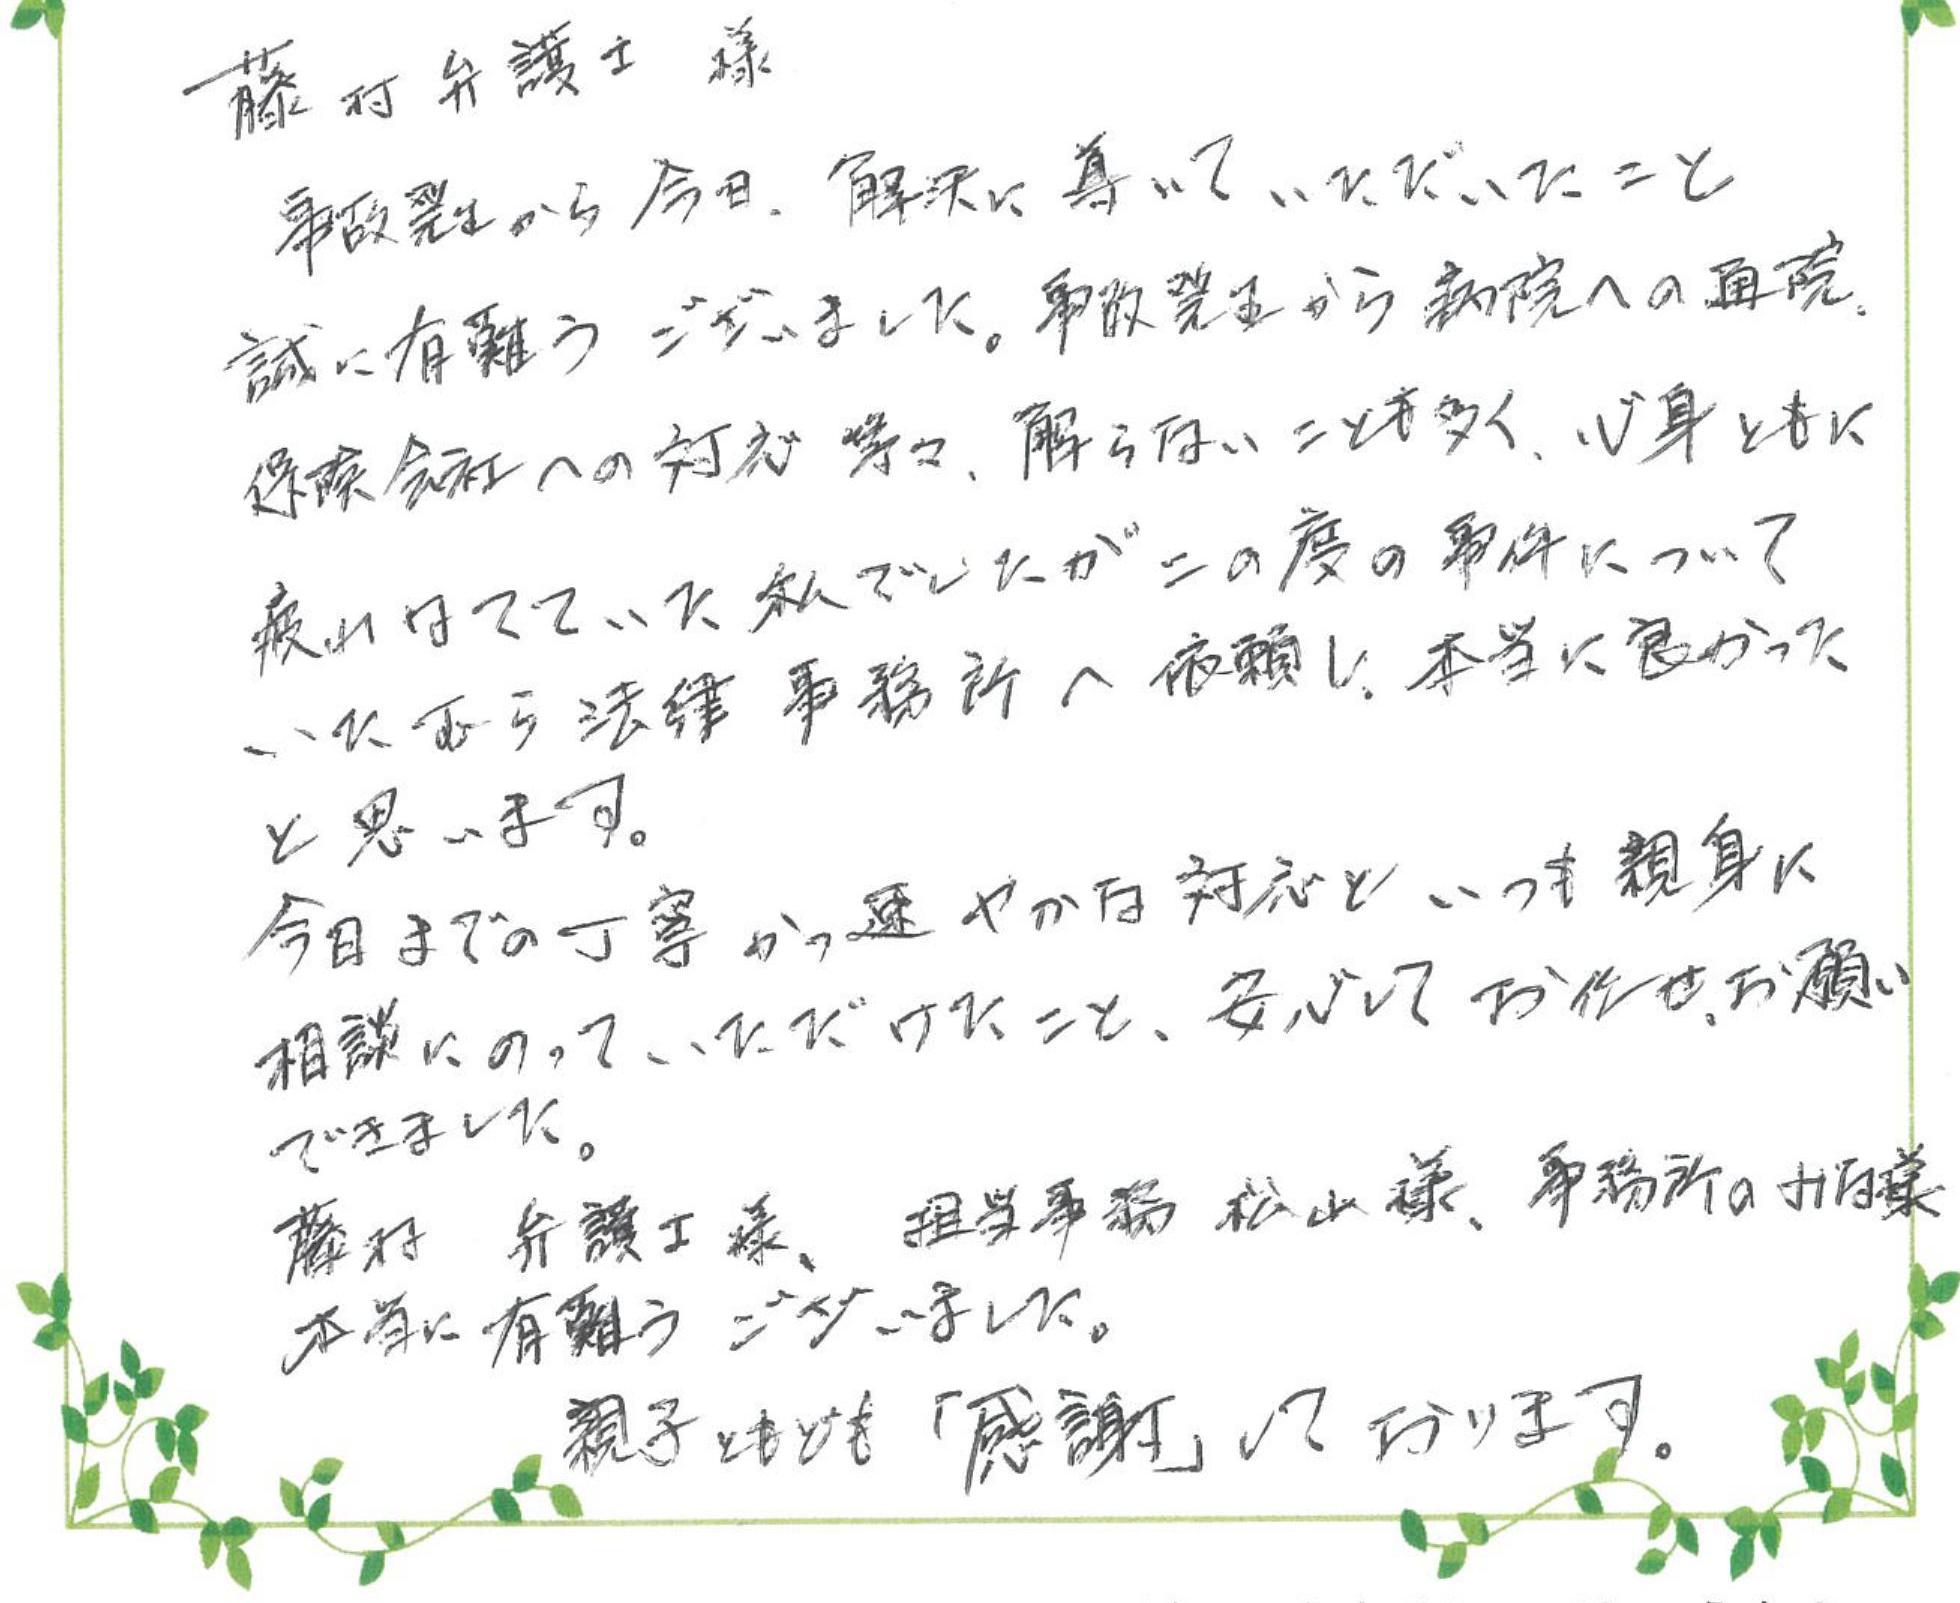 藤村弁護士 様
事故発生から今日、解決に導いていただいたこと
誠に有難うございました。事故発生から病院への通院、
保険会社への対応等々、解らないことも多く、心身ともに
疲れはてていた私でしたがこの度の事件について
いたむら法律事務所へ依頼し、本当に良かった
と思います。
今日までの丁寧かつ速やかな対応といつも親身に
相談にのっていただけたこと、安心してお任せ、お願い
できました。
藤村 弁護士様、担当事務 松山様、事務所のみな様
本当に有難うございました。
親子ともども「感謝」しております。